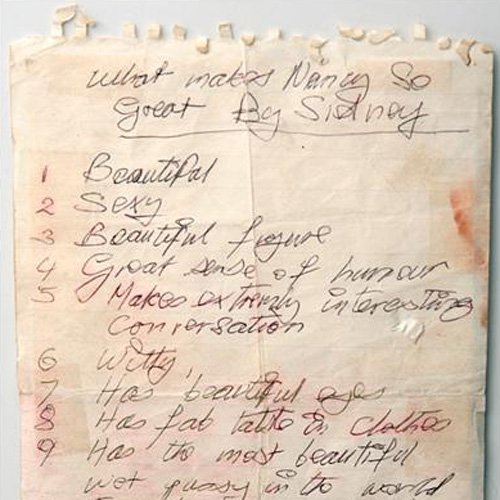 What makes Nancy So
Great By Sidney
1 Beautiful
2 Sexy
3 Beautiful figure
4 Great sense of humour
5 Makes extremly interesting
conversation
6 Witty,
7 Has beautiful eyes
8 Has fab taste in clothes
9 Has the most beautiful
wet pussy in the world